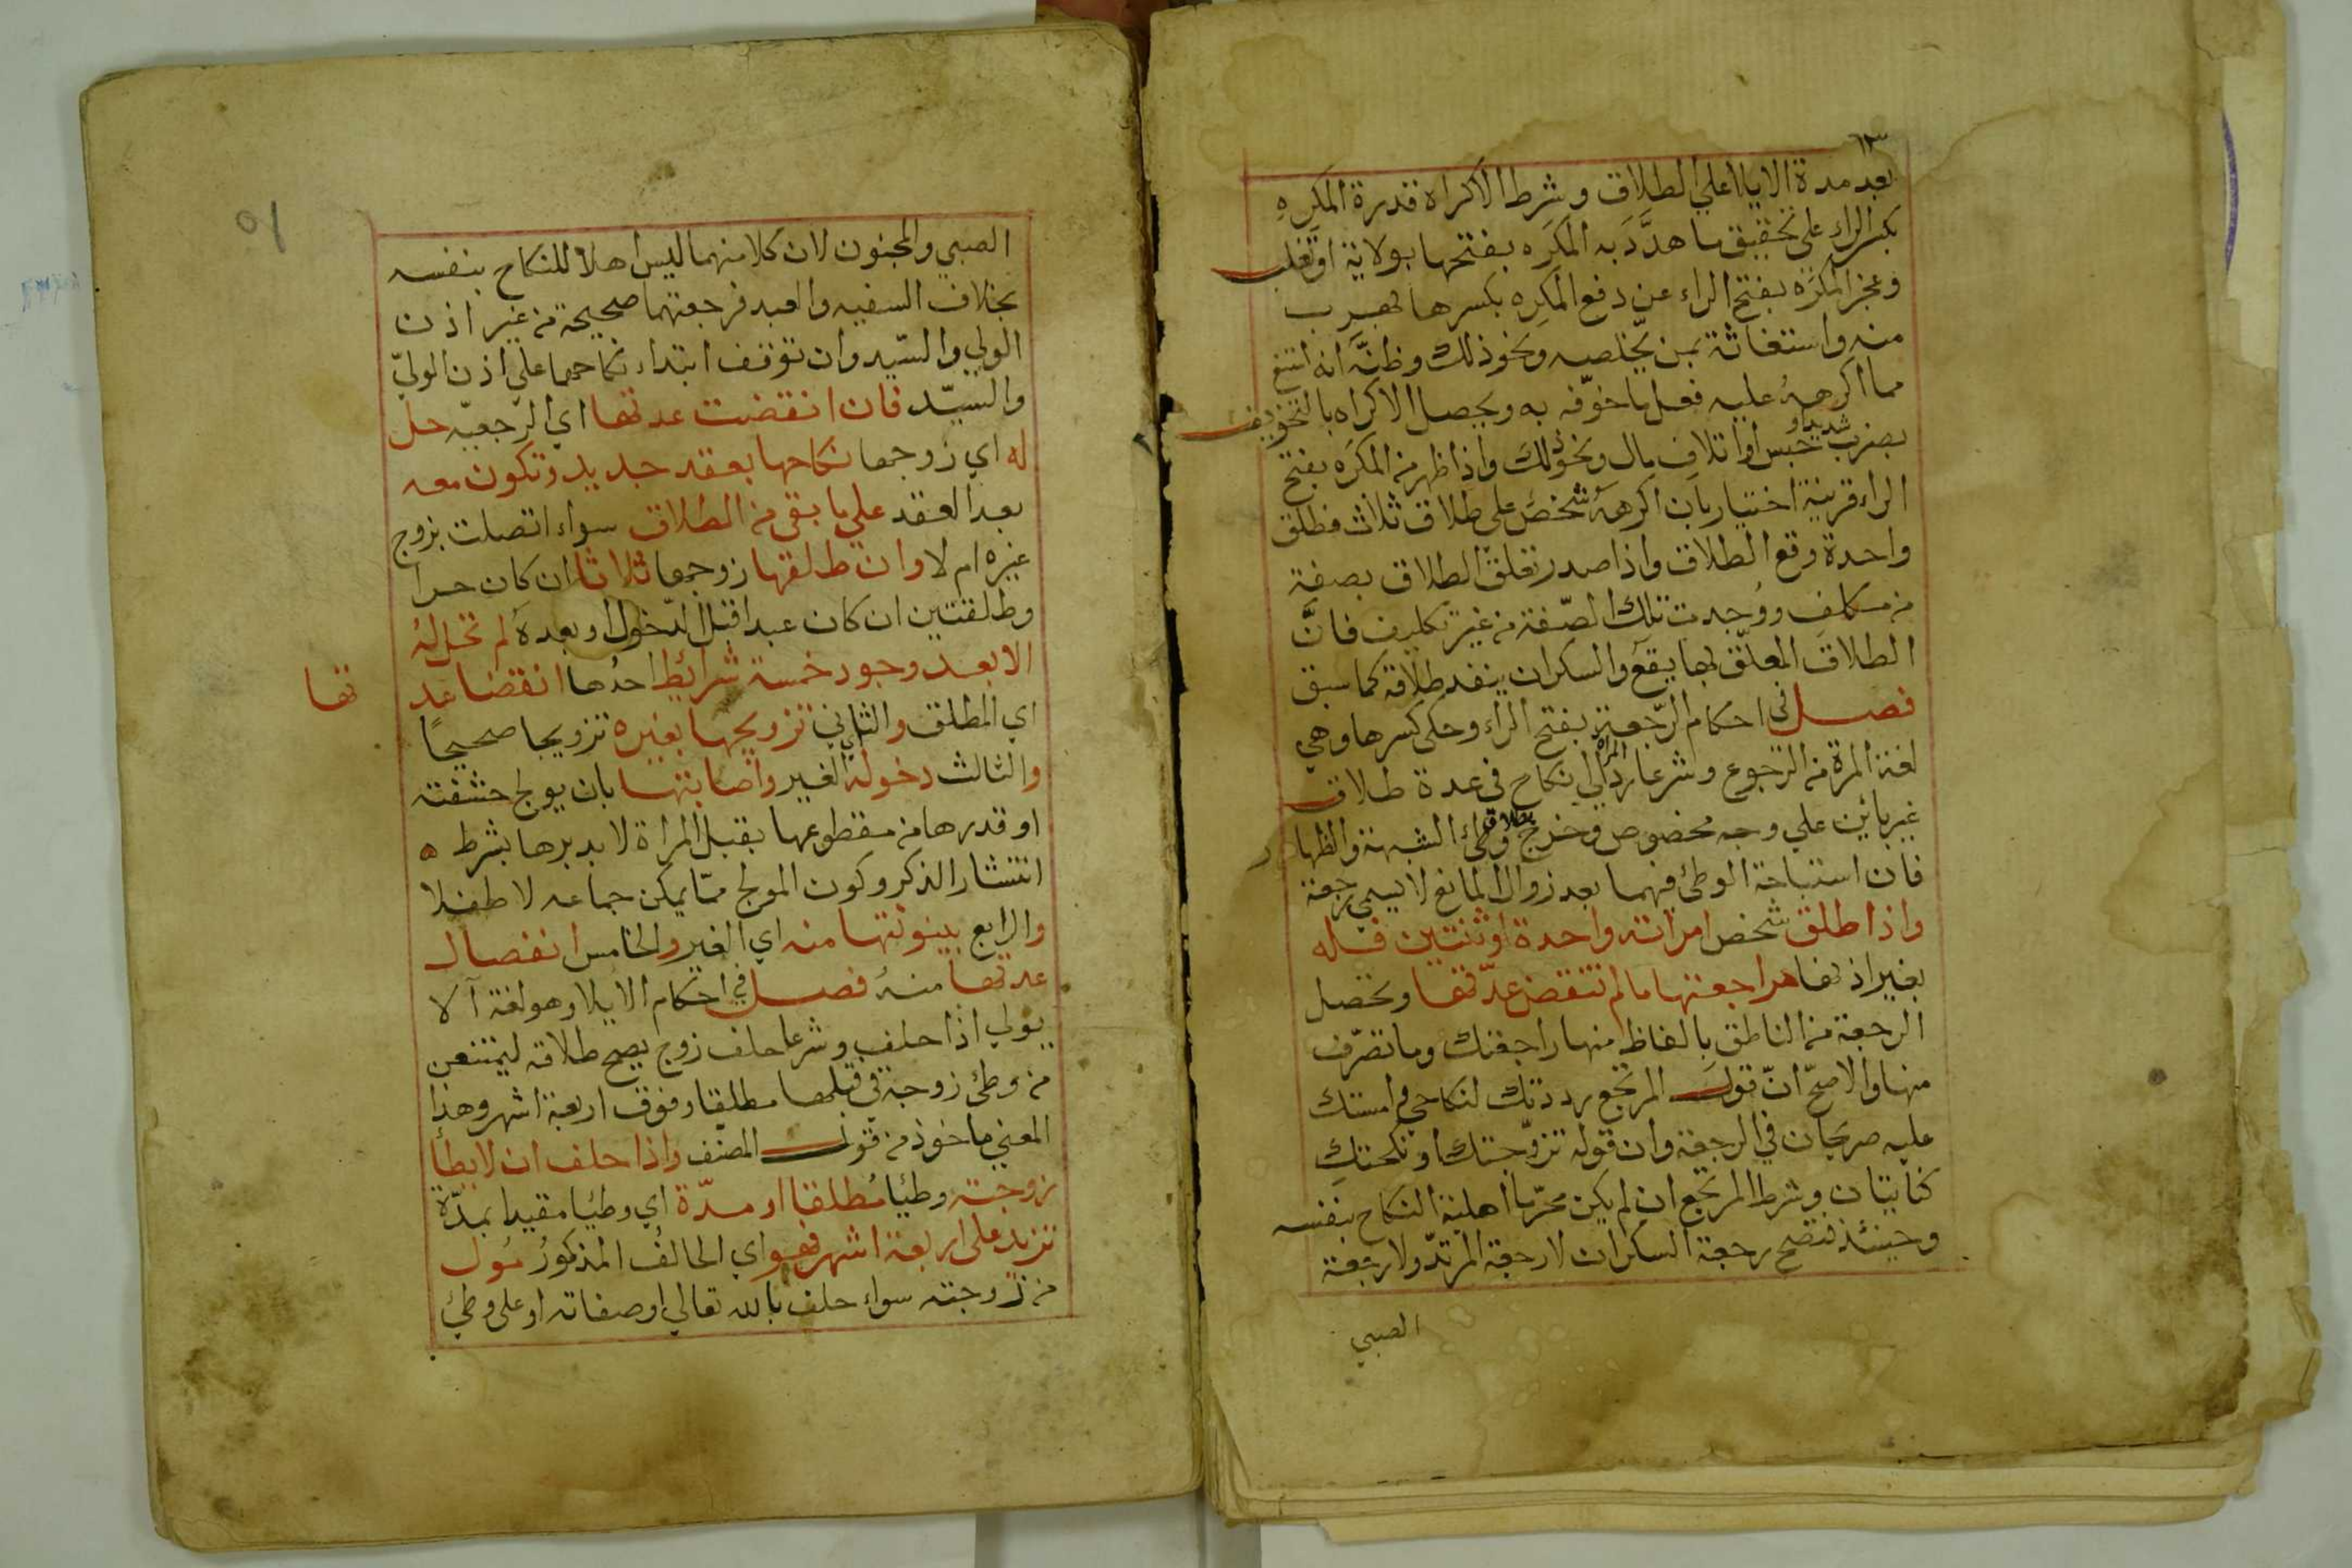 بعد مدة الايلا علي الطلاق وشرط الاكراه قدرة المكرِه
بكسر الراء علي تحقيق ما هدَّدَ به المكرَه بفتحها بولاية او تغلب
وعجز المكرَه بفتح الراء عن دفع المكرِه بكسرها بهرب
منه واستغاثة بمن يخلصه ونحو ذلك وظنَّه انه امتنع
مما اكرههُ عليه فعل ما خوّفه به ويحصل الاكراه بالتخويف
بضرب شديد او حبس او اتلاف مال ونحو ذلك واذا ظهر من المكرَه بفتح
الراء قرينة اختيار بان اكرههُ شخص علي طلاق ثلاث فطلق
واحدة وقع الطلاق واذا صدر تعلق الطلاق بصفة
من مكلف ووُجدت تلك الصّفة من غير تكليف فانَّ
الطلاق المعلّق بها يقع والسكران ينفد طلاقه كما سبق
فصل في احكام الرّجعة بفتح الراء وحكي كسرها وهي
لغة المرة من الرجوع وشرعا ردّ المراة الي نكاح في عدة طلاق
غير باين علي وجه مخصوص وخرج بطلاق وطئ الشبهة والظهار
فان استباحة الوطئ فيهما بعد زوال المانع لا يسمي رجعة
واذا طلق شخص امراته واحدة او ثنتين فله
بغير اذنها مراجعتها ما لم تنقض عدّتها وتحصل
الرجعة من الناطق بالفاظ منها راجعتك وما تصرّف
منها والاصحّ انّ قول المرتجع رددتك لنكاحي وامستك
عليه صريحان في الرجعة وان قوله تزوّجتك او نكحتكِ
كنايتان وشرط المرتجع ان لم يكن محرّما اهلية النكاح بنفسه
وحينئذ فتصح رجعة السكران لا رجعة المرتدّ ولا رجعة
الصبي
الصبي والمجنون لان كلا منهما ليس اهلا للنكاح بنفسه
بخلاف السفيه والعبد فرجعتهما صحيحة من غير اذن
الولي والسّيد وان توقف ابتداء نكاحهما علي اذن الوليّ
والسيّد فان انقضت عدتها اي الرجعيّه حل
له اي زوجها نكاحها بعقد جديد وتكون معه
بعد العقد علي ما بقي من الطلاق سواء اتصلت بزوج
غيره ام لا وان طلقها زوجها ثلاثا ان كان حرا
وطلقتين ان كان عبدا قبل الدّخول او بعدهُ لم تحل لهُ
الا بعد وجود خمسة شرائط احدُها انقضا عد
تها
اي المطلق والثاني تزويجها بغيره تزويجا صحيحًا
والثالث دخوله اي الغير واصابتها بان يولج حشفته
او قدرها من مقطوعها بقبل المراة لا بدبرها بشرط ه
انتشار الذكر وكون المولج ممّا يمكن جماعه لا طفلا
والرابع بينونتها منه اي الغير والخامس انفصال
عدتها منهُ فصل في احكام الايلا وهو لغة آلا
يولي اذا حلف وشرعا حلف زوج يصح طلاقه ليمتنعن
من وطئ زوجة في قبلها مطلقا وفوق اربعة اشهر وهذا
المعني ماخوذ من قول المصنّف واذا حلف ان لا يطأ
زوجته وطيًا مُطلقا او مدّة اي وطيًا مقيدا بمدّة
تزيد علي اربعة اشهر فهو اي الحالف المذكورُ مُول
من زوجته سواء حلف بالله تعالي او صفاته او علي وطئ
٥١